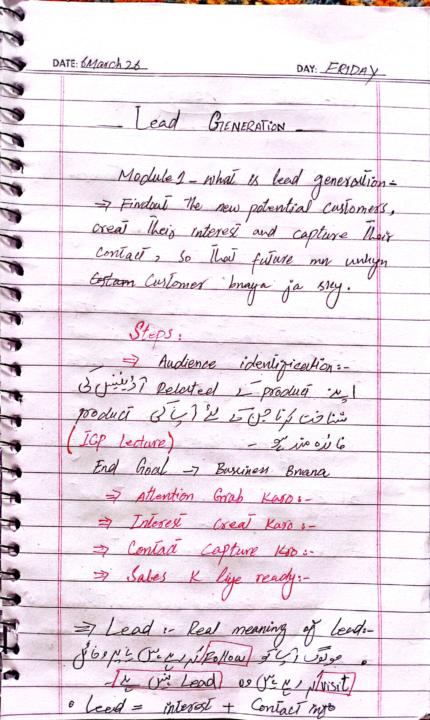 DATE: 6 March 26 DAY: FRIDAY
Lead GENERATION
Module 1 - what is lead generation:-
⇒ Findout The new potential customers,
creat Their interest and capture Their
contact, so that future mn unhyn
Customer bnaya ja sky.
Steps:
⇒ Audience identification:-
اپنے product سے Related آڈینس کی
شناخت کرنا جن کے لئے آپ کی product
(ICP Lecture) فائدہ مند ہو -
End Goal → Bussiness Bnana
⇒ Attention Grab Karo:-
⇒ Interest creat Karo:-
⇒ Contact Capture Kro:-
⇒ Sales K liye ready:-
⇒ Lead :- Real meaning of Lead:-
• جو لوگ آپ کو Follow کر رہے ہیں یا پروفائل
visit کر رہے ہیں وہ Lead نہیں ہے۔
• Lead = interest + Contact info